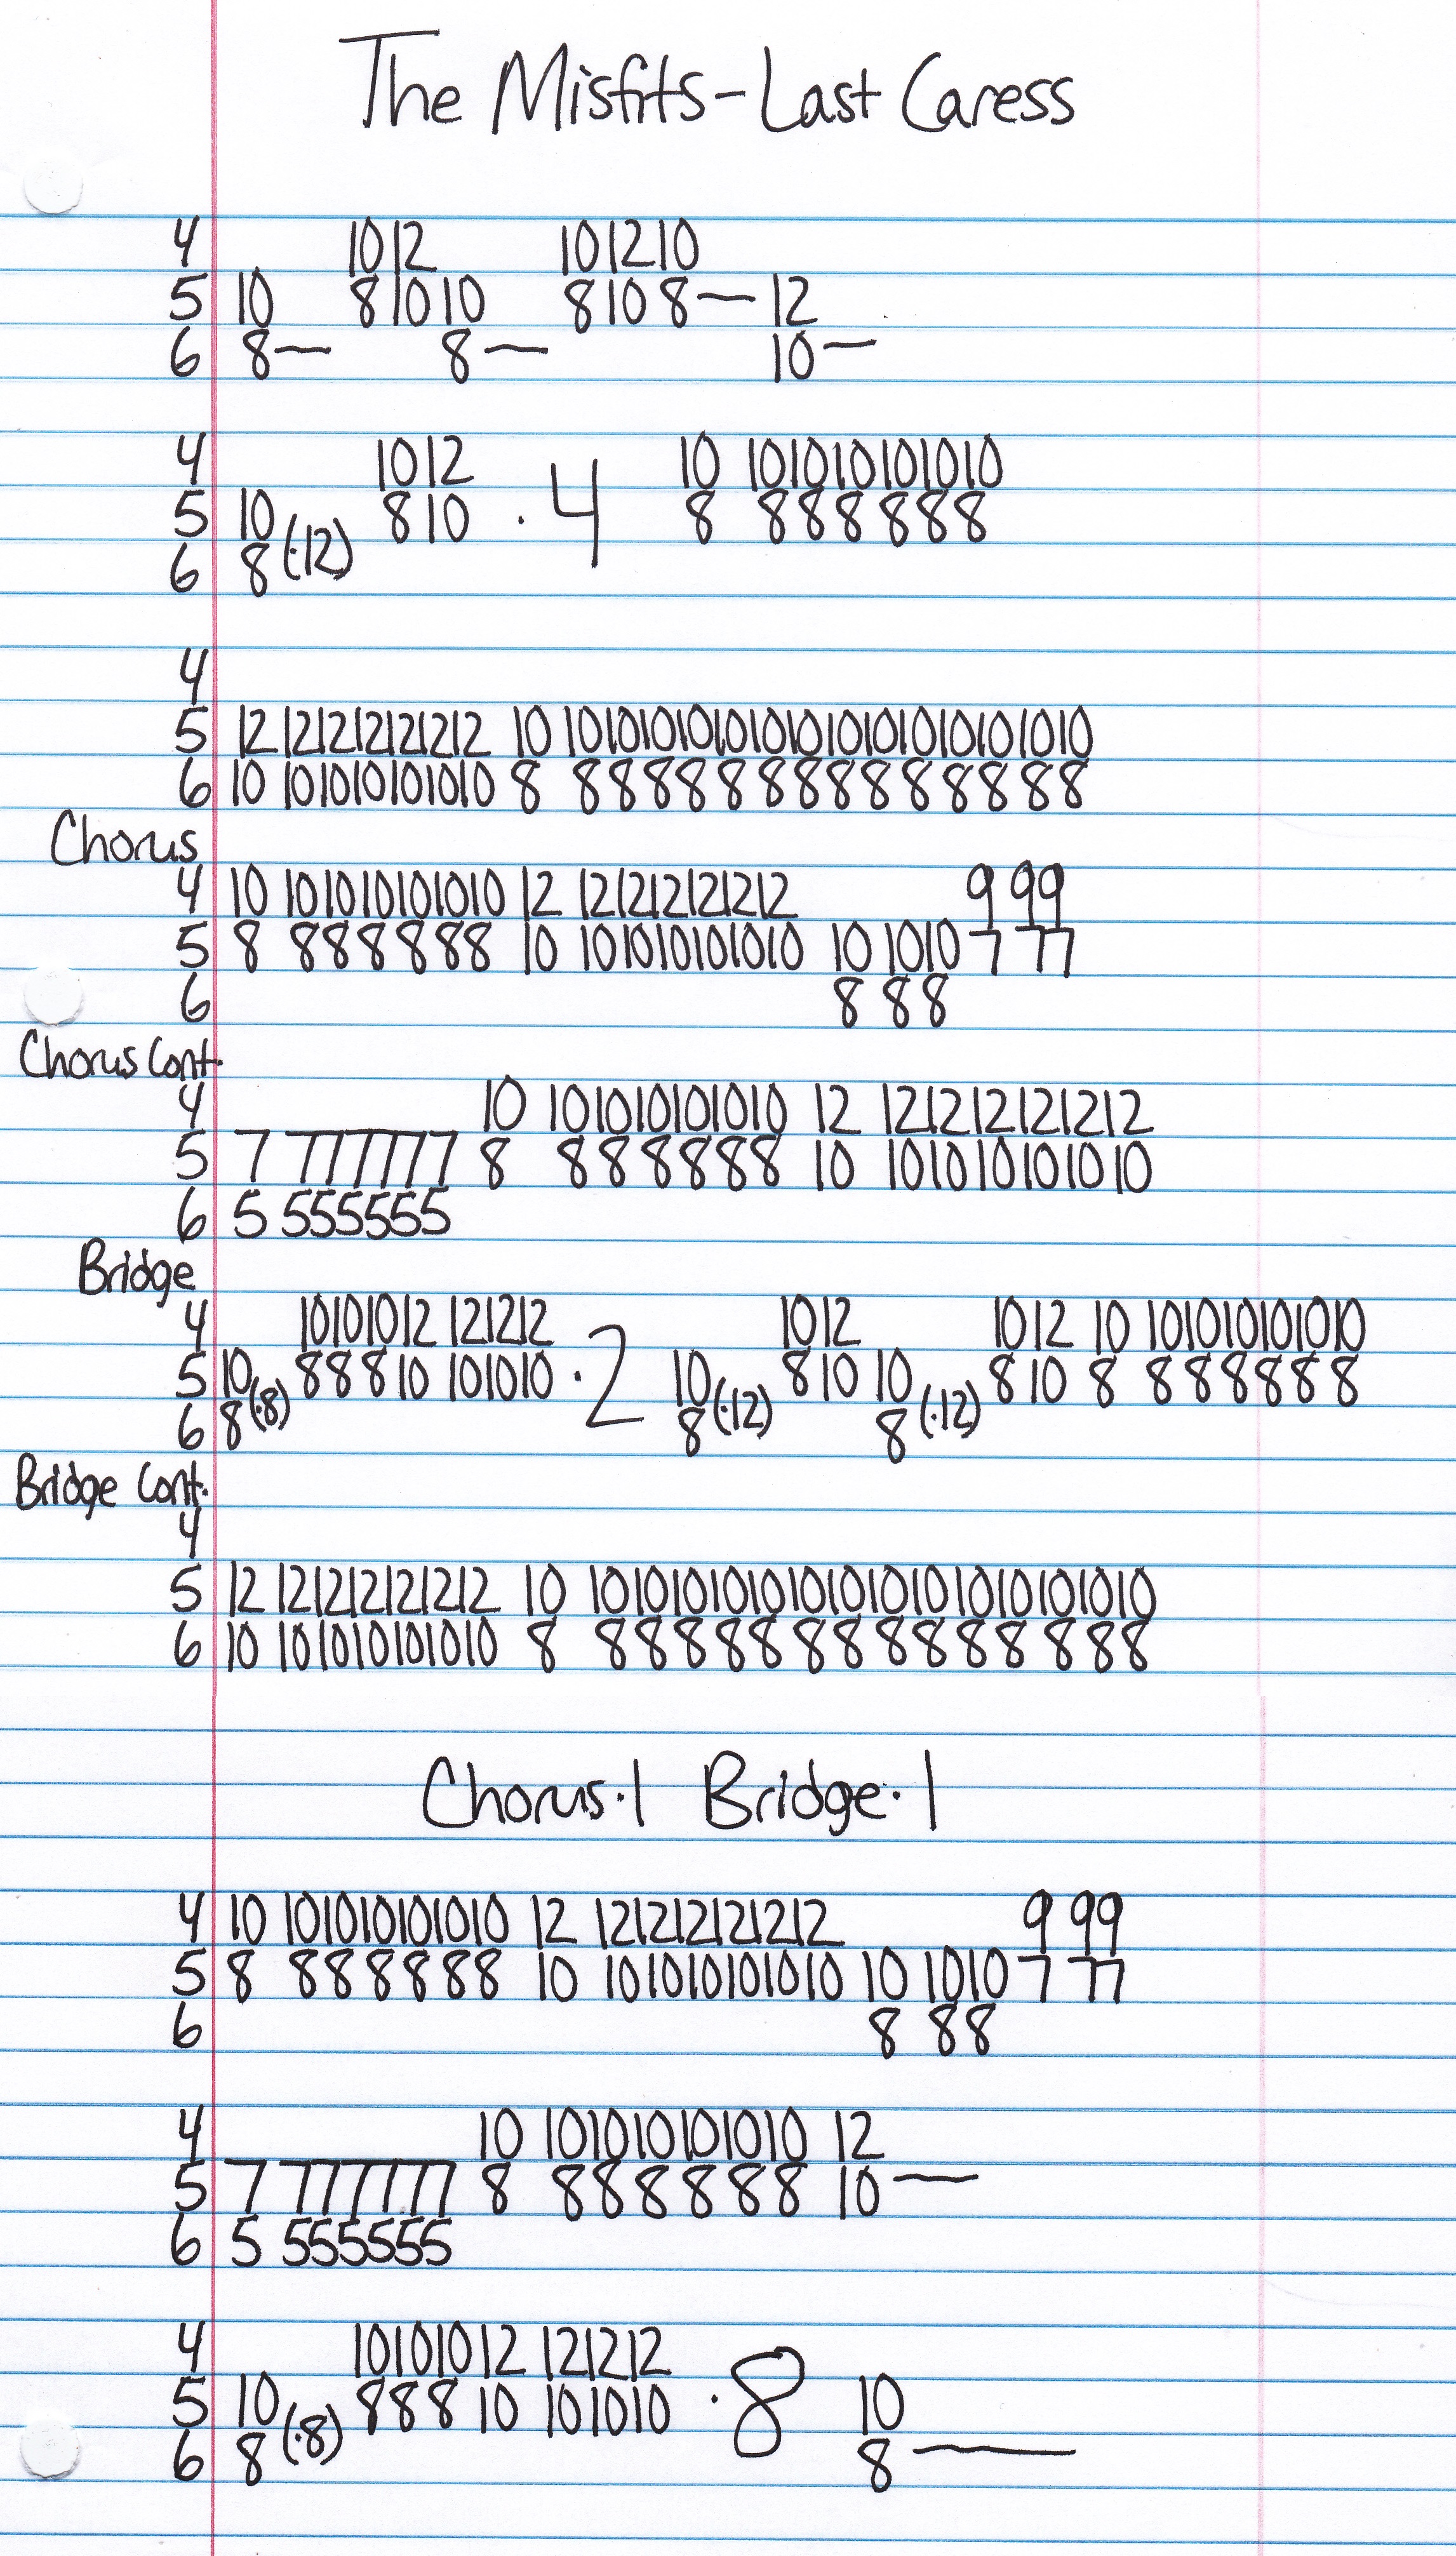 The Misfits - Last Caress
4 10 12 10 12 10
5 10 8 10 10 8 10 8 — 12
6 8 — 8 — 10 —
4 10 12 10 10 10 10 10 10 10
5 10 8 10 · 4 8 8 8 8 8 8 8
6 8 (·12)
4
5 12 12 12 12 12 12 12 10 10 10 10 10 10 10 10 10 10 10 10 10 10 10
6 10 10 10 10 10 10 10 8 8 8 8 8 8 8 8 8 8 8 8 8 8 8
Chorus
4 10 10 10 10 10 10 10 12 12 12 12 12 12 12 9 9 9
5 8 8 8 8 8 8 8 10 10 10 10 10 10 10 10 10 10 7 7 7
6 8 8 8
Chorus Cont.
4 10 10 10 10 10 10 10 12 12 12 12 12 12 12
5 7 7 7 7 7 7 7 8 8 8 8 8 8 8 10 10 10 10 10 10 10
6 5 5 5 5 5 5 5
Bridge
4 10 10 10 12 12 12 12 10 12 10 12 10 10 10 10 10 10 10
5 10 8 8 8 10 10 10 10 · 2 10 8 10 10 8 10 8 8 8 8 8 8 8
6 8 (·8) 8 (·12) 8 (·12)
Bridge Cont.
4
5 12 12 12 12 12 12 12 10 10 10 10 10 10 10 10 10 10 10 10 10 10 10
6 10 10 10 10 10 10 10 8 8 8 8 8 8 8 8 8 8 8 8 8 8 8
Chorus · 1 Bridge · 1
4 10 10 10 10 10 10 10 12 12 12 12 12 12 12 9 9 9
5 8 8 8 8 8 8 8 10 10 10 10 10 10 10 10 10 10 7 7 7
6 8 8 8
4 10 10 10 10 10 10 10 12
5 7 7 7 7 7 7 7 8 8 8 8 8 8 8 10 —
6 5 5 5 5 5 5 5
4 10 10 10 12 12 12 12
5 10 8 8 8 10 10 10 10 · 8 10
6 8 (·8) 8 —